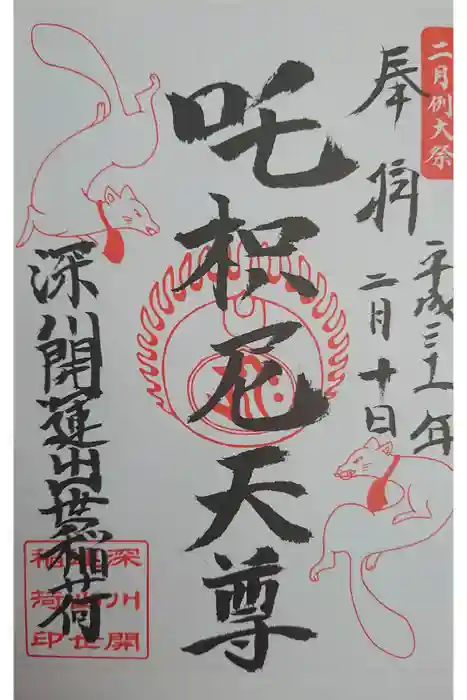 二月例大祭
奉拝
平成三十一年
二月十日
吒枳尼天尊
深川開運出世稲荷
深川開
運出世
稲荷印